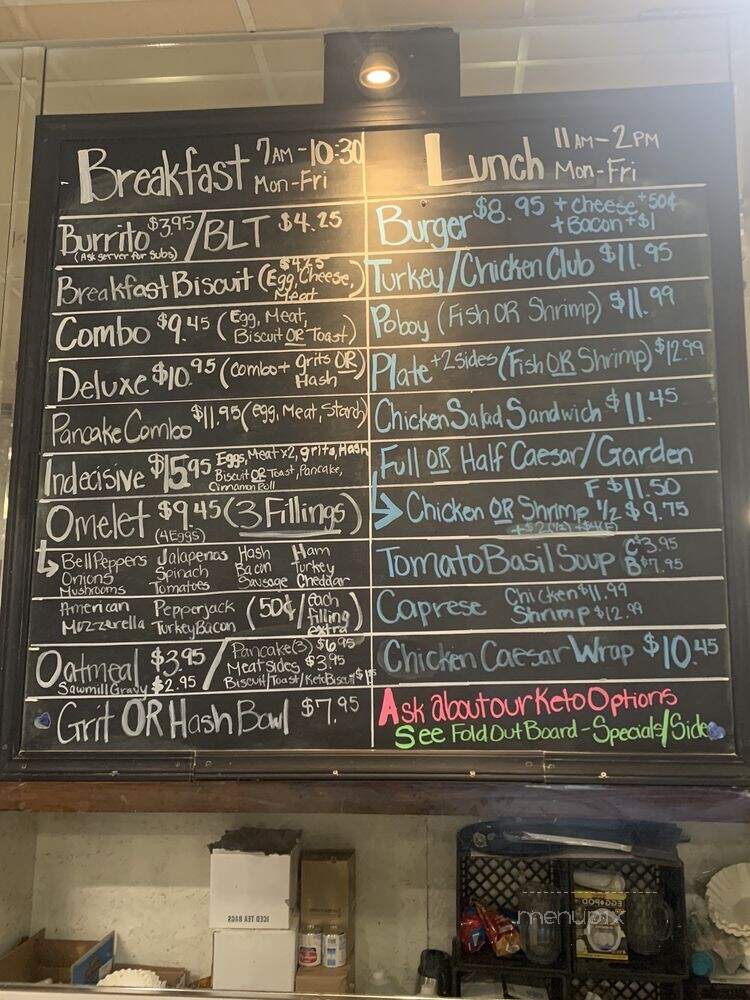 Breakfast 7AM-10:30
Mon-Fri
Burrito $3.95/BLT $4.25
(Ask server for subs)
Breakfast Biscuit $4.25 (Egg, Cheese, Meat)
Combo $9.45 (Egg, Meat, Biscuit OR Toast)
Deluxe $10.95 (combo + grits OR Hash)
Pancake Combo $11.95 (egg, Meat, Starch)
Indecisive $15.95 Eggs, Meat x2, grits, Hash
Biscuit OR Toast, Pancake,
Cinnamon Roll
Omelet $9.45 (3 Fillings)
(4 Eggs)
Bell Peppers Jalapenos Hash Ham
Onions Spinach Bacon Turkey
Mushrooms Tomatoes Sausage Cheddar
American Pepperjack (50¢/each filling extra)
Mozzarella Turkey Bacon
Oatmeal $3.95/
Sawmill Gravy $2.95
Pancake(3) $6.95
Meat sides $3.95
Biscuit/Toast/Keto Biscuit
Grit OR Hash Bowl $7.95
Lunch 11AM-2PM
Mon-Fri
Burger $8.95 + cheese +50¢
+ Bacon +$1
Turkey/Chicken Club $11.95
Poboy (Fish OR Shrimp) $11.99
Plate +2 sides (Fish OR Shrimp) $12.99
Chicken Salad Sandwich $11.45
Full OR Half Caesar/Garden
F $11.50
Chicken OR Shrimp 1/2 $9.75
Tomato Basil Soup C $3.95
B $7.95
Caprese Chicken $11.99
Shrimp $12.99
Chicken Caesar Wrap $10.45
Ask about our Keto Options
See Fold Out Board - Specials/Sides
ICED TEA BAGS
EGG·POD
menupix